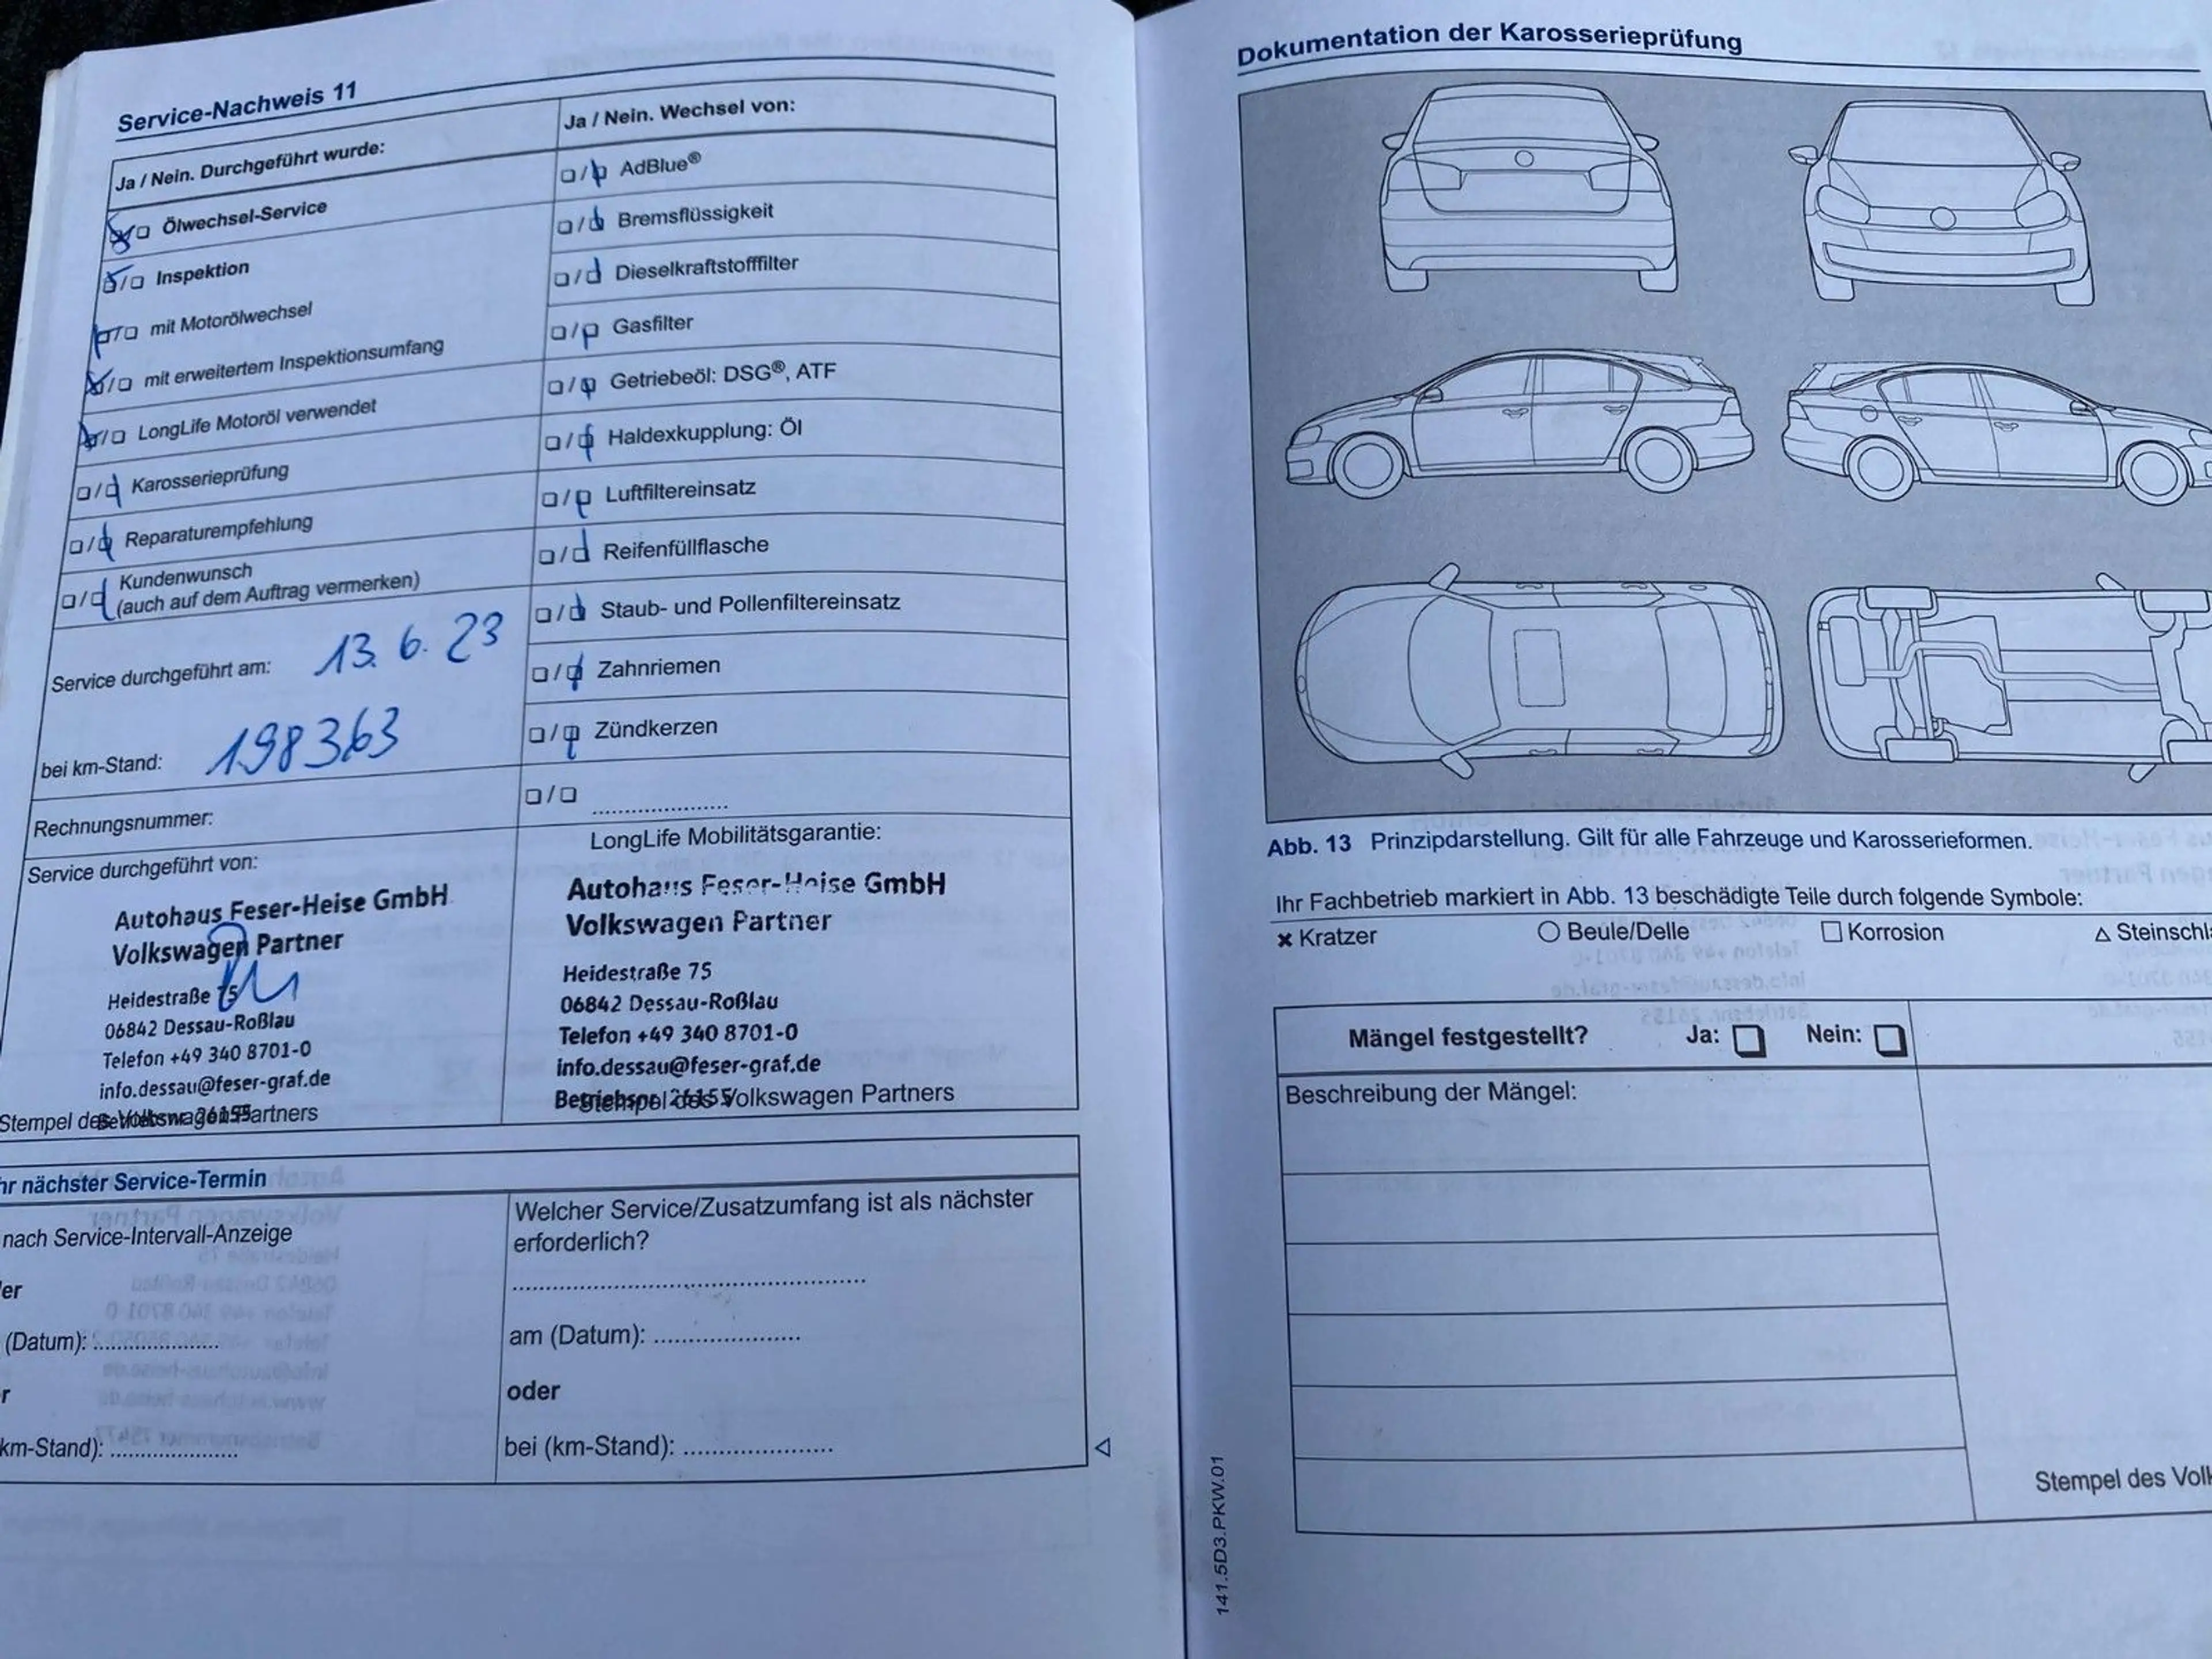 Service-Nachweis 11
Ja / Nein. Durchgeführt wurde:
Ölwechsel-Service
Inspektion
mit Motorölwechsel
mit erweitertem Inspektionsumfang
LongLife Motoröl verwendet
Karosserieprüfung
Reparaturempfehlung
Kundenwunsch
(auch auf dem Auftrag vermerken)
Service durchgeführt am: 13. 6. 23
bei km-Stand: 198363
Rechnungsnummer:
Service durchgeführt von:
Autohaus Feser-Heise GmbH
Volkswagen Partner
Heidestraße 75
06842 Dessau-Roßlau
Telefon +49 340 8701-0
info.dessau@feser-graf.de
Betriebsnr. 26155
Stempel des Volkswagen Partners
Ja / Nein. Wechsel von:
AdBlue®
Bremsflüssigkeit
Dieselkraftstofffilter
Gasfilter
Getriebeöl: DSG®, ATF
Haldexkupplung: Öl
Luftfiltereinsatz
Reifenfüllflasche
Staub- und Pollenfiltereinsatz
Zahnriemen
Zündkerzen
LongLife Mobilitätsgarantie:
Autohaus Feser-Heise GmbH
Volkswagen Partner
Heidestraße 75
06842 Dessau-Roßlau
Telefon +49 340 8701-0
info.dessau@feser-graf.de
Betriebsnr. 26155
Stempel des Volkswagen Partners
hr nächster Service-Termin
nach Service-Intervall-Anzeige
er
(Datum): ....................
r
km-Stand): ....................
Welcher Service/Zusatzumfang ist als nächster
erforderlich?
am (Datum): ....................
oder
bei (km-Stand): ....................
Dokumentation der Karosserieprüfung
Abb. 13 Prinzipdarstellung. Gilt für alle Fahrzeuge und Karosserieformen.
Ihr Fachbetrieb markiert in Abb. 13 beschädigte Teile durch folgende Symbole:
× Kratzer ○ Beule/Delle □ Korrosion △ Steinschl
Mängel festgestellt? Ja: □ Nein: □
Beschreibung der Mängel:
Stempel des Vol
141.5D3.PKW.01